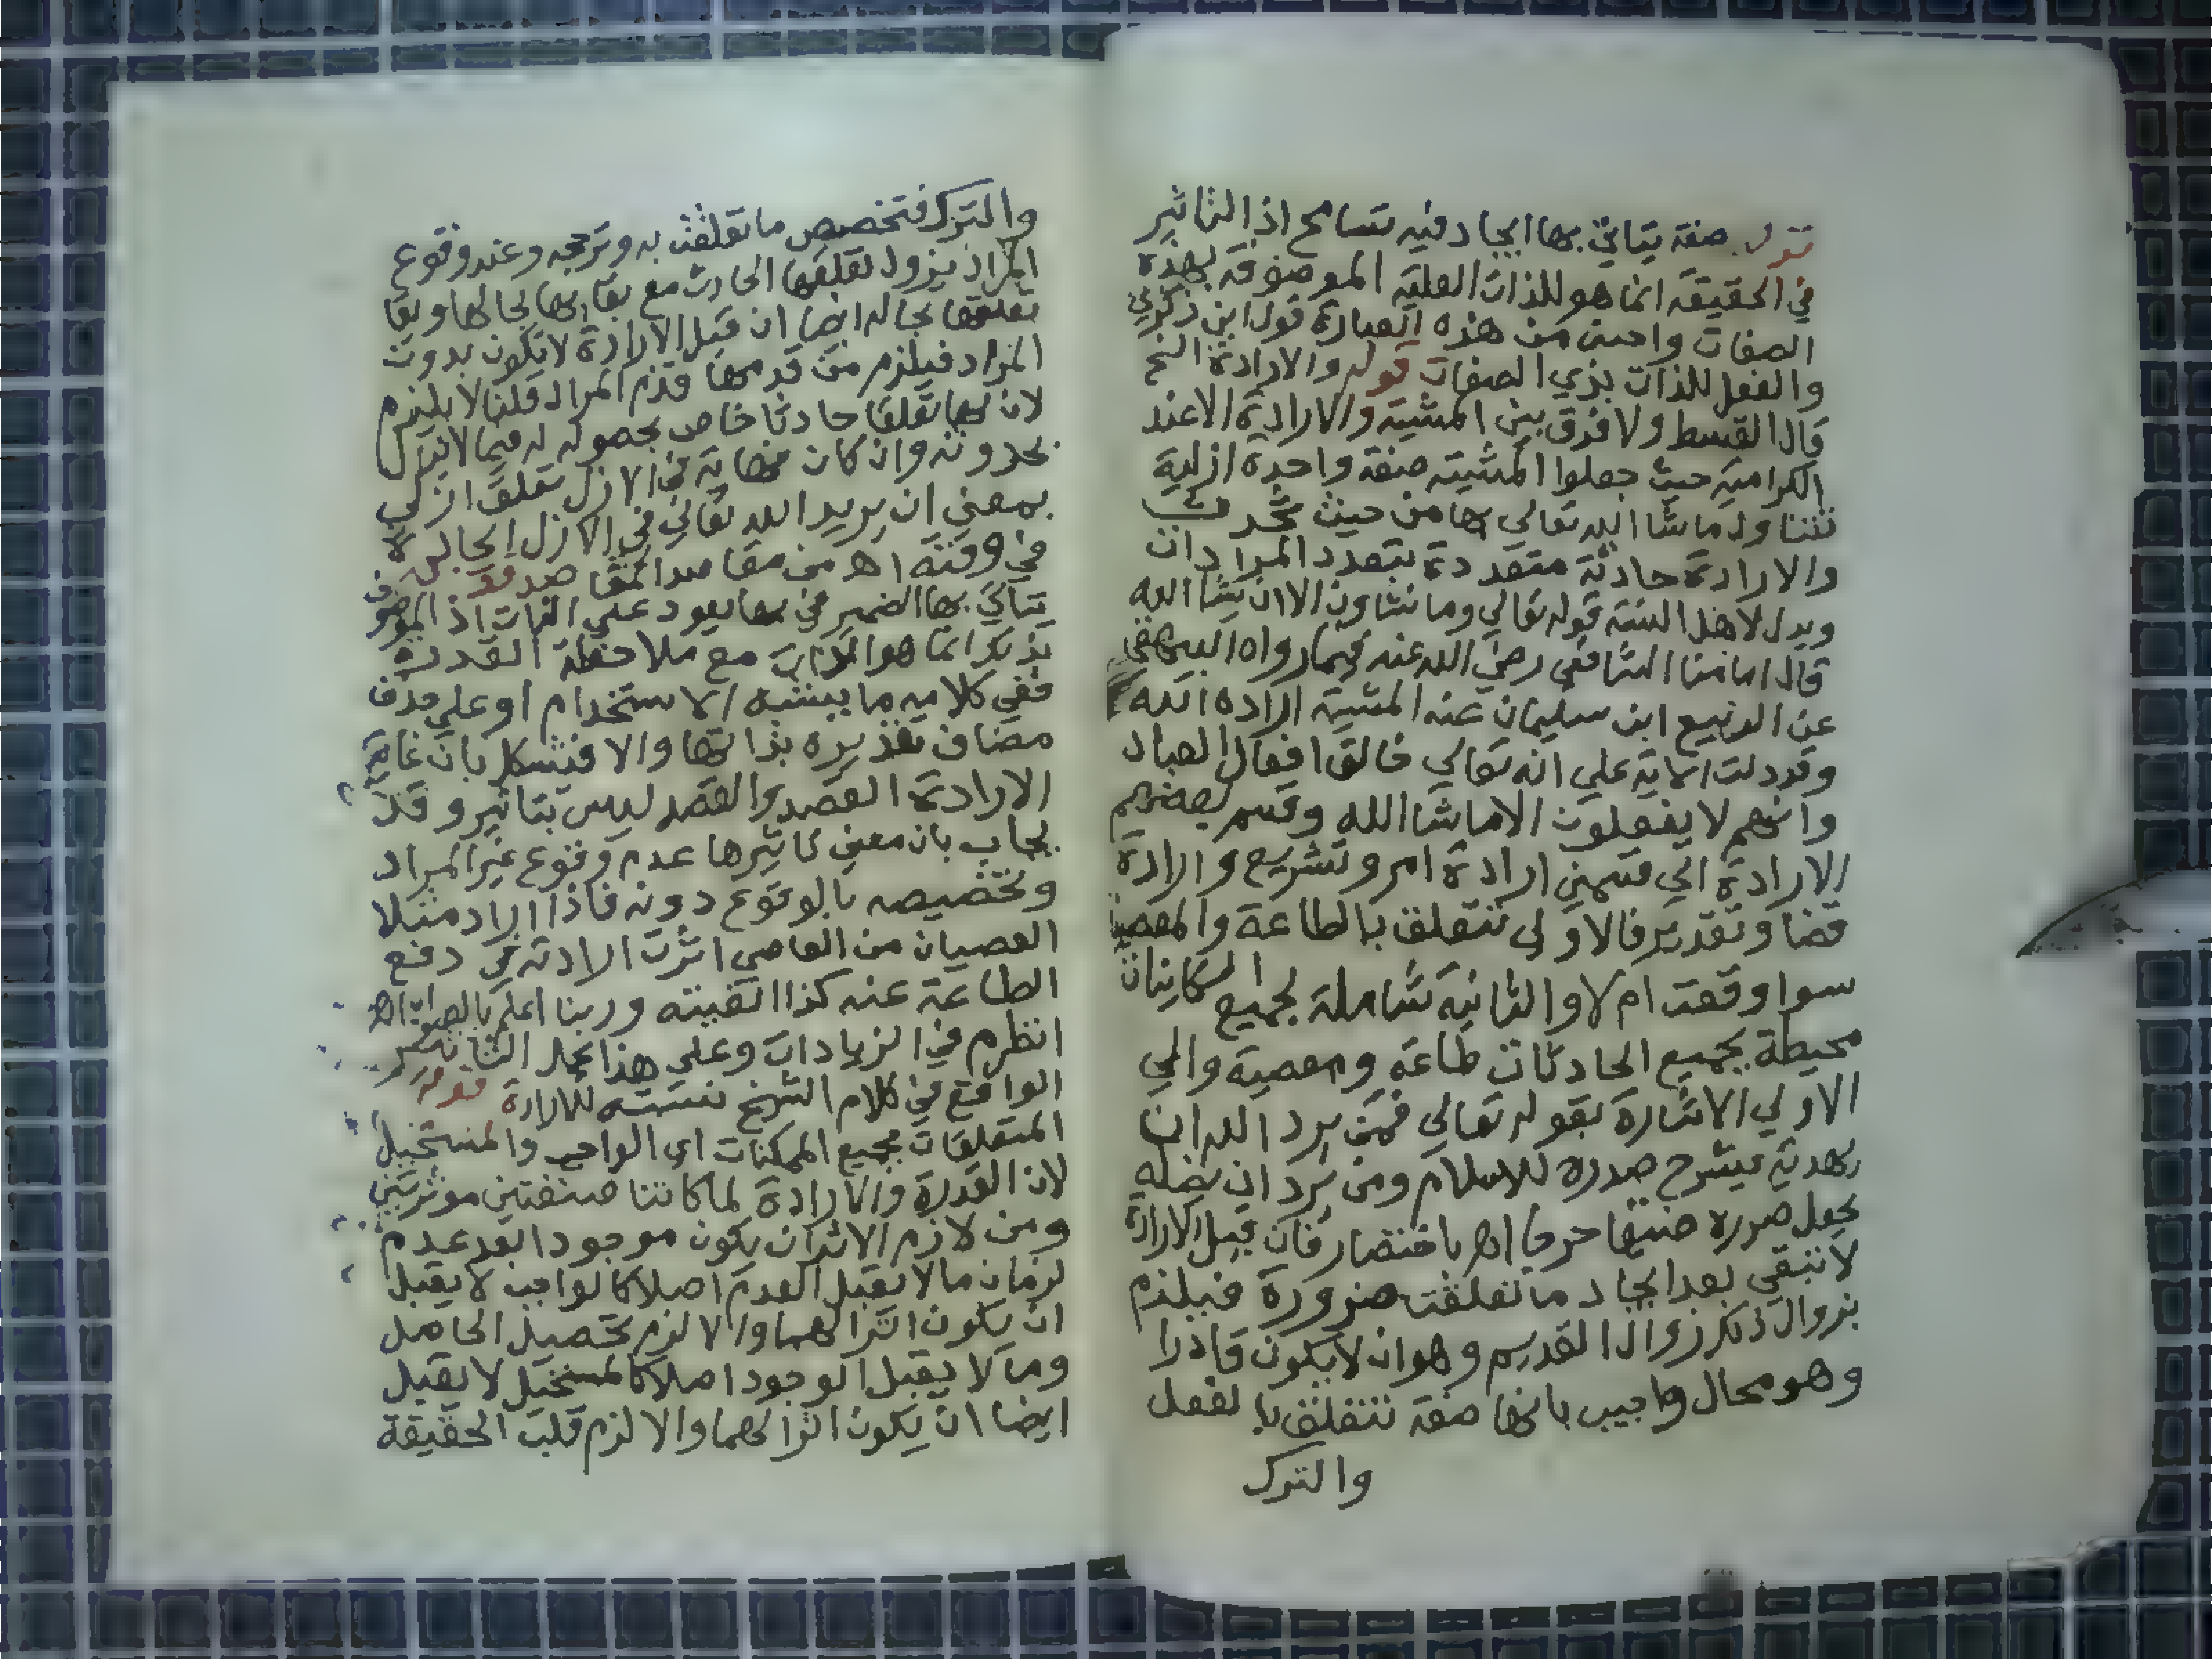 قوله صفة يتاتي بها ايجاد فيه تسامح اذ التاثير
في الحقيقة انما هو للذات العلية الموصوفة بهذه
الصفات واحسن من هذه العبارة قول ابن ذكري
والفعل للذات بذي الصفات قوله والارادة الخ
قال القسط ولا فرق بين المشية والارادة الا عند
الكرامية حيث جعلوا المشية صفة واحدة ازلية
تتناول ما شا الله تعالي بها من حيث تحدث
والارادة حادثة متعددة بتعدد المرادات
ويدل لاهل السنة قوله تعالي وما تشاون الا ان يشا الله
قال امامنا الشافعي رضي الله عنه فيما رواه البيهقي
عن الربيع ابن سليمان عنه المشية ارادة الله
وقد دلت الاية علي انه تعالي خالق افعال العباد
وانهم لا يفعلون الا ما شا الله وقسم بعضهم
الارادة الي قسمين ارادة امر وتشريع وارادة
قضا وتقدير فالاولي تتعلق بالطاعة والمعصية
سوا وقعت ام لا والثانية شاملة لجميع الكاينات
محيطة بجميع الحادثات طاعة ومعصية والي
الاولي الاشارة بقوله تعالي فمن يرد الله ان
يهديه يشرح صدره للاسلام ومن يرد ان يضله
يجعل صدره ضيقا حرجا اهـ باختصار فان قيل الارادة
لا تبقي بعد ايجاد ما تعلقت ضرورة فيلزم
بزوال ذلك زوال القديم وهو ان لا يكون قادرا
وهو محال واجيب بانها صفة تتعلق بالفعل
والترك
والترك فتخصص ما تعلقت به وترجحه وعند وقوع
المراد يزول تعلقها الحادث مع بقايها بحالها وبقا
تعلقها بحاله ايضا ان قيل الارادة لا تكون بدون
المراد فيلزم من قدمها قدم المراد قلنا لا يلزم
لان لها تعلقا حادثا خاص بحصوله له فيما لا يزال
بحدوثه وان كان لها به في الازل تعلق ازلي
بمعني ان يريد الله تعالي في الازل ايجاله
في وقته اهـ من مقاصد المقاصد قوله
يتاتي بها الضمير في بها يعود علي الذات اذ الموصوف
بذلك انما هو الذات مع ملاحظة القدرة
ففي كلامه ما يشبه الاستخدام او علي حذف
مضاف تقديره بذاتها والا فتشكل بان غاية
الارادة القصد والقصد ليس بتاثير وقد
يجاب بان معني تاثيرها عدم وقوع غير المراد
وتخصيصه بالوقوع دونه فاذا اراد مثلا
العصيان من العاصي اثرت ارادته في دفع
الطاعة عنه كذا الفيته وربنا اعلم بالصواب اهـ
انظره في الزيادات وعلي هذا يحمل التاثير
الواقع في كلام الشيخ نسبته للارادة قوله
المتعلقات بجميع الممكنات اي الواجب والمستحيل
لان القدرة والارادة لما كانتا صفتين موثرتين
ومن لازم الاثر ان يكون موجودا بعد عدم
لزم ان ما لا يقبل العدم اصلا كالواجب لا يقبل
ان يكون اثرا لهما والا لزم تحصيل الحاصل
وما لا يقبل الوجود اصلا كالمستحيل لا يقبل
ايضا ان يكون اثرا لهما والا لزم قلب الحقيقة